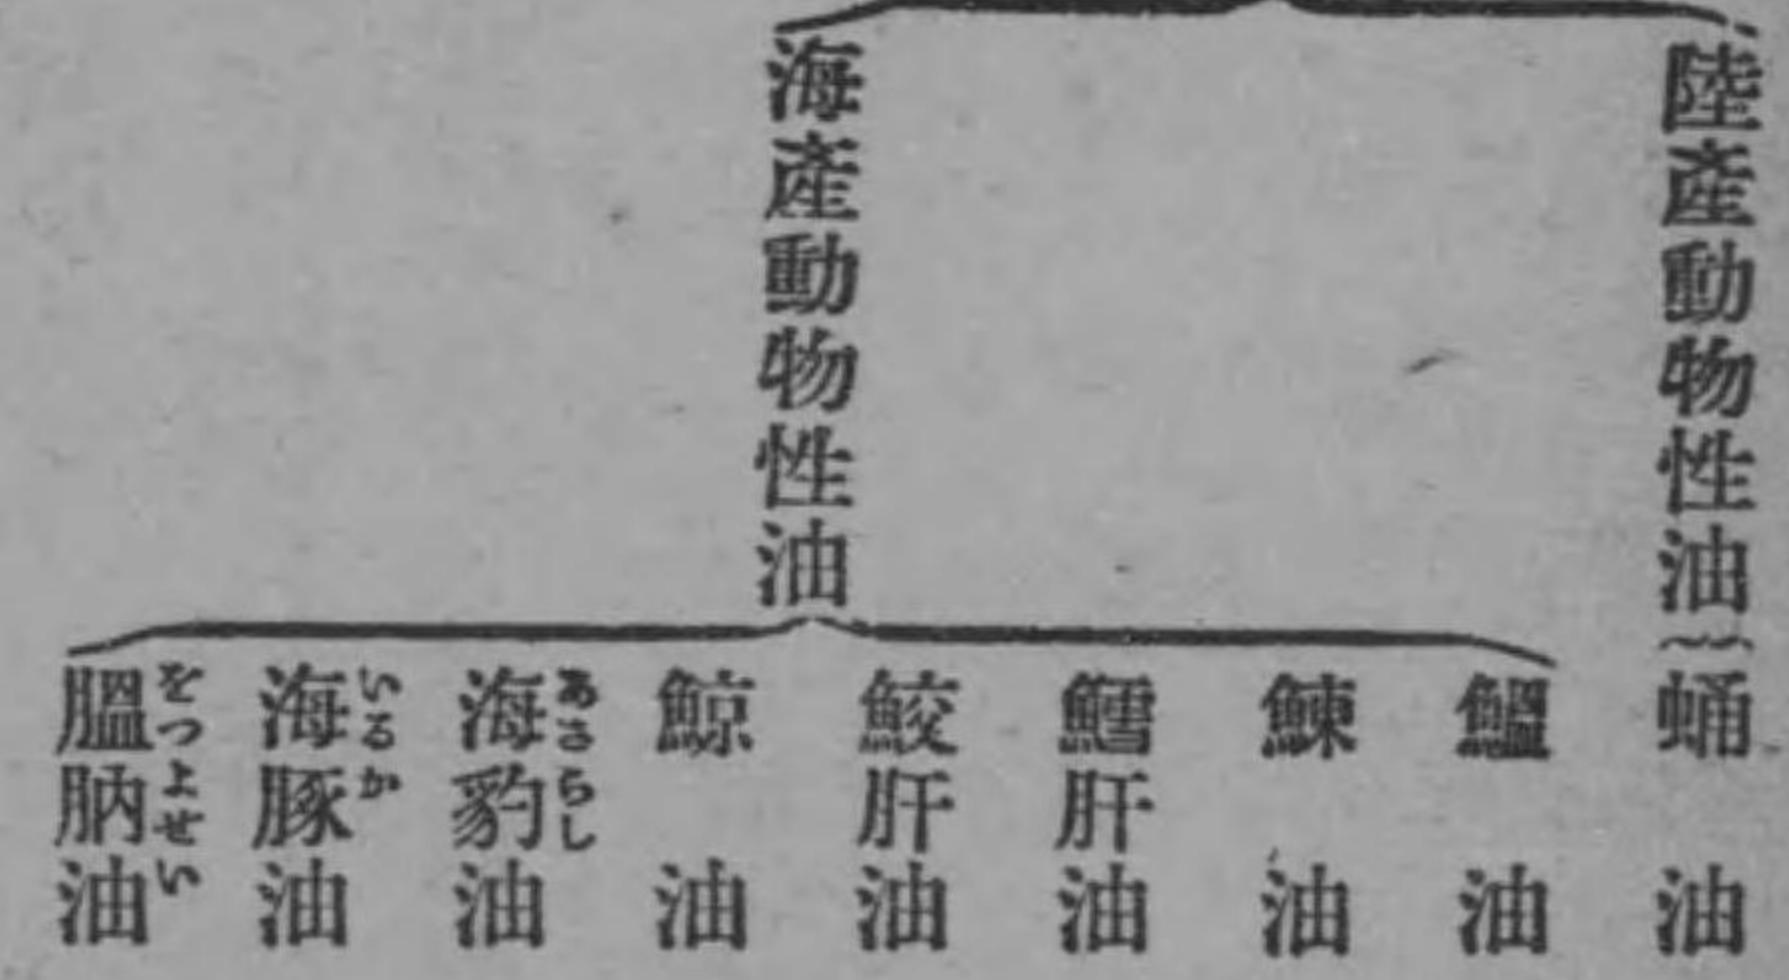 陸產動物性油
蛹油
海產動物性油
鰮油
鰊油
鱈肝油
鮫肝油
鯨油
海豹油
あさらし
海豚油
いるか
膃肭油
をつよせい